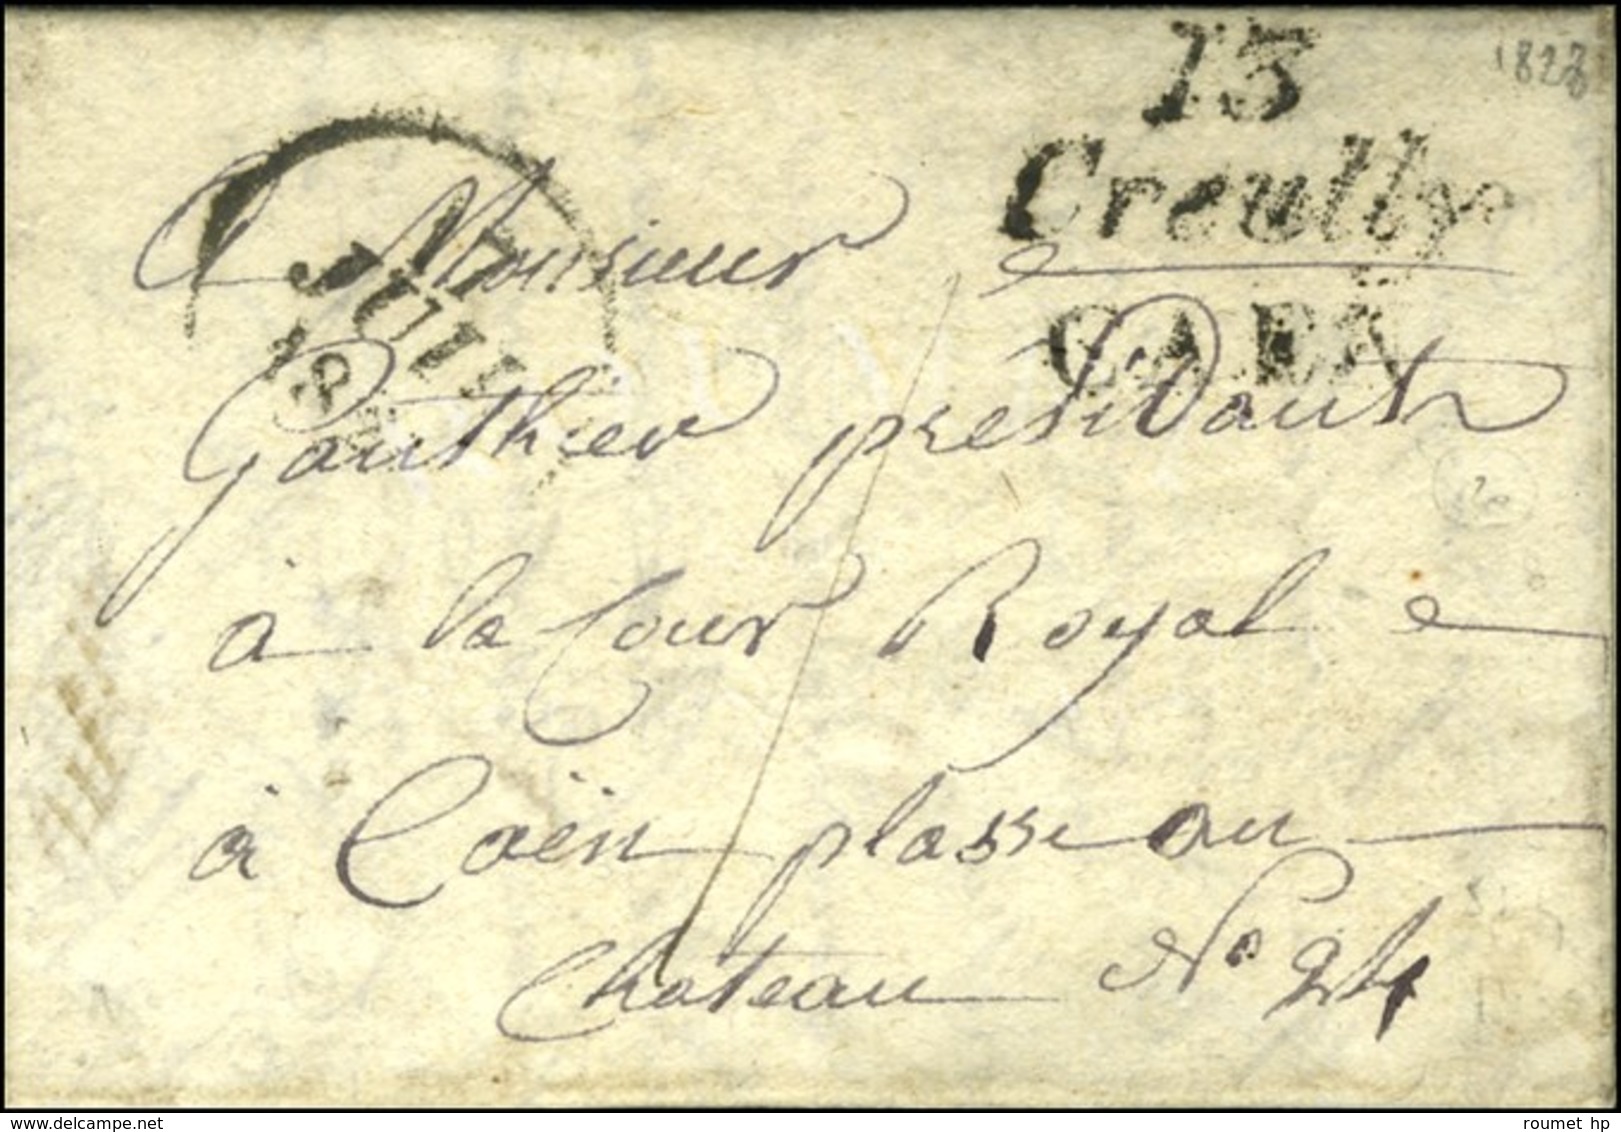 13
Creully
CAEN
1828
JUIL
A Monsieur
Gauthier president
à la Cour Royal
à Caën plasse au
chateau N° 24
roumet hp